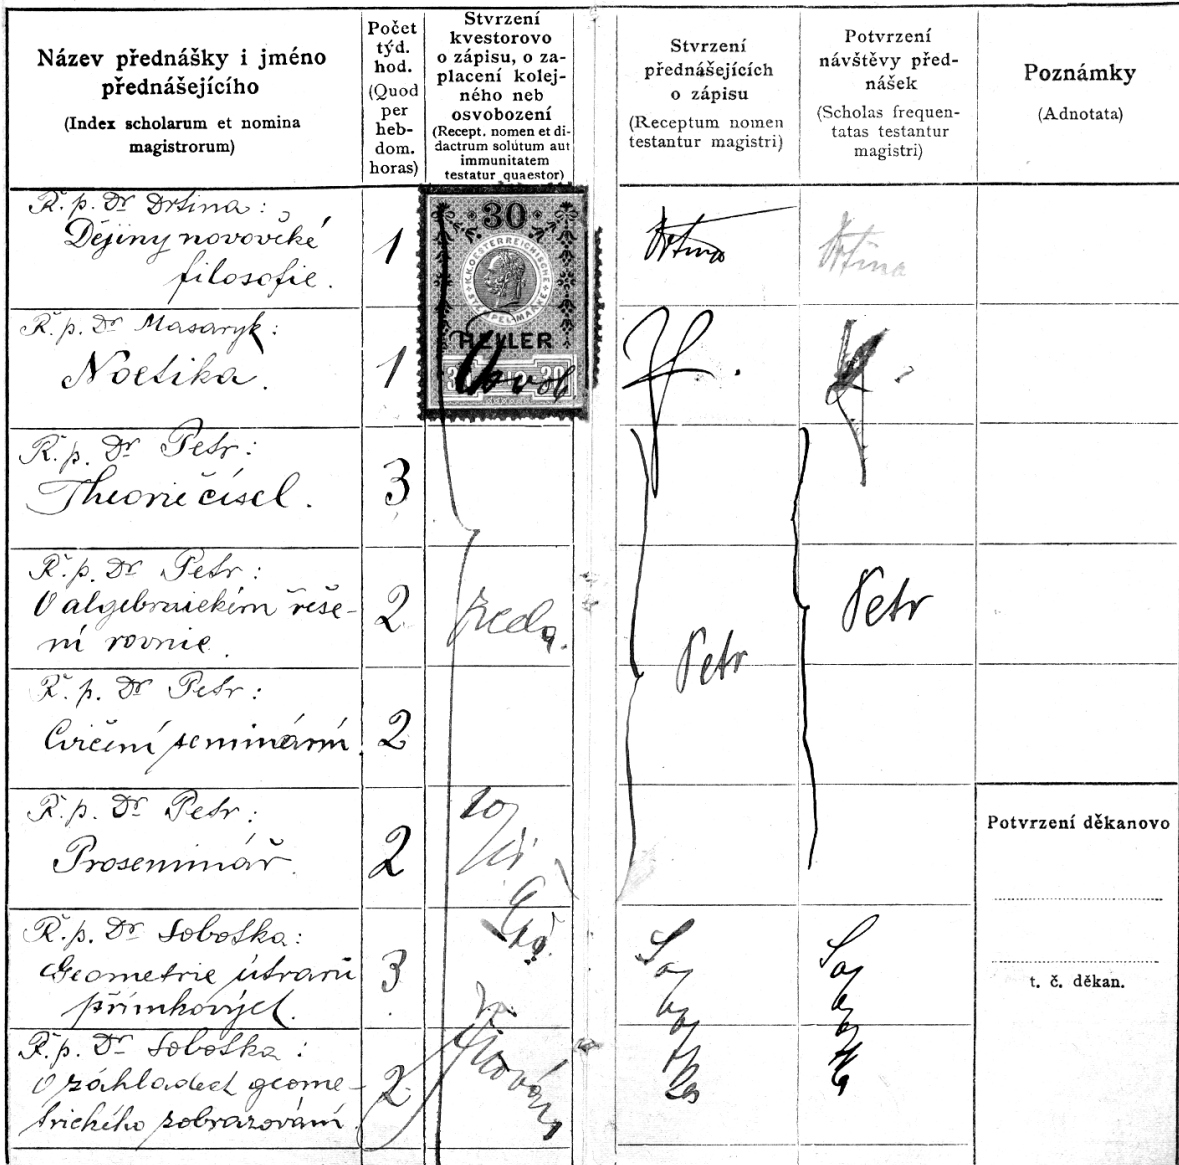 Název přednášky i jméno
přednášejícího
(Index scholarum et nomina
magistrorum)
Počet
týd.
hod.
(Quod
per
heb-
dom.
horas)
Stvrzení
kvestorovo
o zápisu, o za-
placení kolej-
ného neb
osvobození
(Recept. nomen et di-
dactrum solutum aut
immunitatem
testatur quaestor)
Stvrzení
přednášejících
o zápisu
(Receptum nomen
testantur magistri)
Potvrzení
návštěvy před-
nášek
(Scholas frequen-
tatas testantur
magistri)
Poznámky
(Adnotata)
Ř. p. Dr Drtina:
Dějiny novověké
filosofie.
1
30
K.K. OESTERREICHISCHE
STEMPELMARKE
HELLER
30
30
Drtina
Drtina
Ř. p. Dr Masaryk:
Noetika.
1
Ř. p. Dr Petr:
Theorie čísel.
3
Ř. p. Dr Petr:
O algebraickém řeše-
ní rovnic.
2
Petr
Petr
Ř. p. Dr Petr:
Cvičení seminární
2
Ř. p. Dr Petr:
Proseminář.
2
Potvrzení děkanovo
t. č. děkan.
Ř. p. Dr Sobotka:
Geometrie útvarů
přímkových.
3
Ř. p. Dr Sobotka:
O základech geome-
trického zobrazování.
2